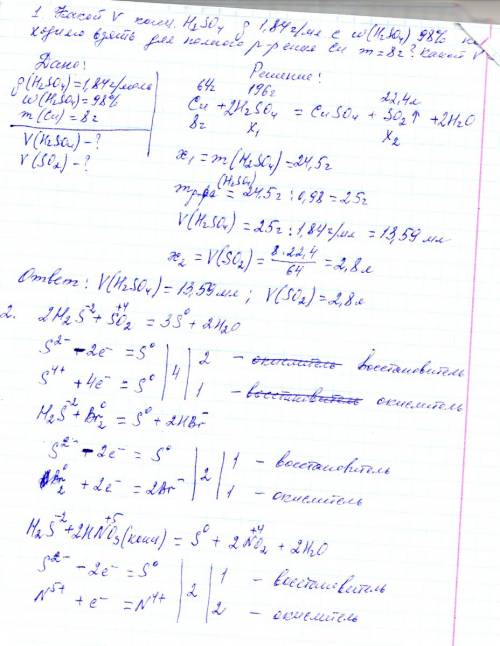 1. Какой V конц. H₂SO₄ ρ 1,84 г/мл с w(H₂SO₄) 98% не
ходимо взять для полного р-рения Cu m=8г? Какой V
Дано:
ρ(H₂SO₄)=1,84г/моль
w(H₂SO₄)=98%
m(Cu)=8г
V(H₂SO₄)-?
V(SO₂)-?
Решение:
64г 196г 22,4л
Cu + 2H₂SO₄ = CuSO₄ + SO₂↑ + 2H₂O
8г x₁ x₂
x₁ = m(H₂SO₄)=24,5г
m р-ра (H₂SO₄) = 24,5г : 0,98 = 25г
V(H₂SO₄) = 25г : 1,84г/мл = 13,59 мл
x₂ = V(SO₂) = 8·22,4/64 = 2,8л
Ответ: V(H₂SO₄) = 13,59 мл; V(SO₂)=2,8л
2. 2H₂S⁻² + S⁺⁴O₂ = 3S⁰ + 2H₂O
S²⁻ - 2e⁻ = S⁰ | 4 | 2 - окислитель восстановитель
S⁴⁺ + 4e⁻ = S⁰ | | 1 - восстановитель окислитель
H₂S⁻² + Br₂⁰ = S⁰ + 2HBr⁻
S²⁻ - 2e⁻ = S⁰ | 2 | 1 - восстановитель
Br₂⁰ + 2e⁻ = 2Br⁻ | | 1 - окислитель
H₂S⁻² + 2HN⁺⁵O₃(конц) = S⁰ + 2N⁺⁴O₂ + 2H₂O
S²⁻ - 2e⁻ = S⁰ | 2 | 1 - восстановитель
N⁵⁺ + e⁻ = N⁴⁺ | | 2 - окислитель